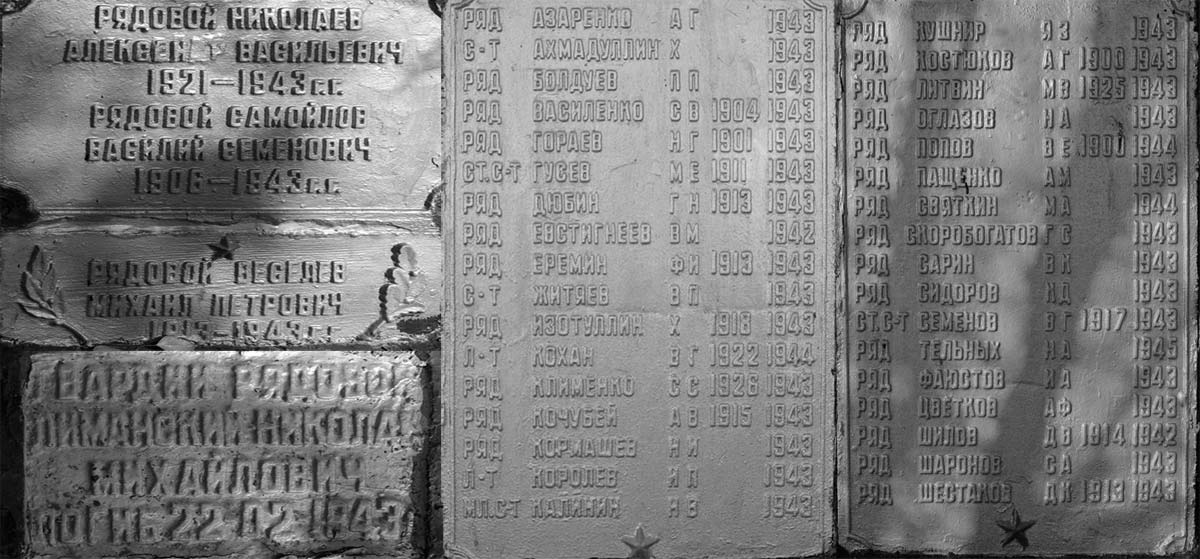 РЯДОВОЙ НИКОЛАЕВ
АЛЕКСЕНДР ВАСИЛЬЕВИЧ
1921–1943г.г.
РЯДОВОЙ САМОЙЛОВ
ВАСИЛИЙ СЕМЕНОВИЧ
1906–1943г.г.
РЯДОВОЙ ВЕСЕЛЕВ
МИХАИЛ ПЕТРОВИЧ
1913–1943г.г.
ГВАРДИИ РЯДОВОЙ
ЛИМАНСКИЙ НИКОЛАЙ
МИХАЙЛОВИЧ
ПОГИБ 22 02 1943
РЯД АЗАРЕНКО А Г 1943
С-Т АХМАДУЛЛИН Х 1943
РЯД БОЛДУЕВ П П 1943
РЯД ВАСИЛЕНКО С В 1904 1943
РЯД ГОРАЕВ Н Г 1901 1943
СТ.С-Т ГУСЕВ М Е 1911 1943
РЯД ДЮБИН Г Н 1913 1943
РЯД ЕВСТИГНЕЕВ В М 1942
РЯД ЕРЕМИН Ф И 1913 1943
С-Т ЖИТЯЕВ В П 1943
РЯД ИЗОТУЛЛИН Х 1918 1943
Л-Т КОХАН В Г 1922 1944
РЯД КЛИМЕНКО С С 1926 1943
РЯД КОЧУБЕЙ А В 1915 1943
РЯД КОРМАШЕВ Н И 1943
Л-Т КОРОЛЕВ Я П 1943
МЛ.С-Т КАЛИНИН Н В 1943
РЯД КУШНИР Я З 1943
РЯД КОСТЮКОВ А Г 1900 1943
РЯД ЛИТВИН М В 1925 1943
РЯД ОГЛАЗОВ Н А 1943
РЯД ПОПОВ В Е 1900 1944
РЯД ПАЩЕНКО А М 1943
РЯД СВЯТКИН М А 1944
РЯД СКОРОБОГАТОВ Г С 1943
РЯД САРИН В К 1943
РЯД СИДОРОВ И Д 1943
СТ.С-Т СЕМЕНОВ В Г 1917 1943
РЯД ТЕЛЬНЫХ Н А 1945
РЯД ФАЮСТОВ И А 1943
РЯД ЦВЕТКОВ А Ф 1943
РЯД ШИЛОВ Д В 1914 1942
РЯД ШАРОНОВ С А 1943
РЯД ШЕСТАКОВ Д К 1913 1943